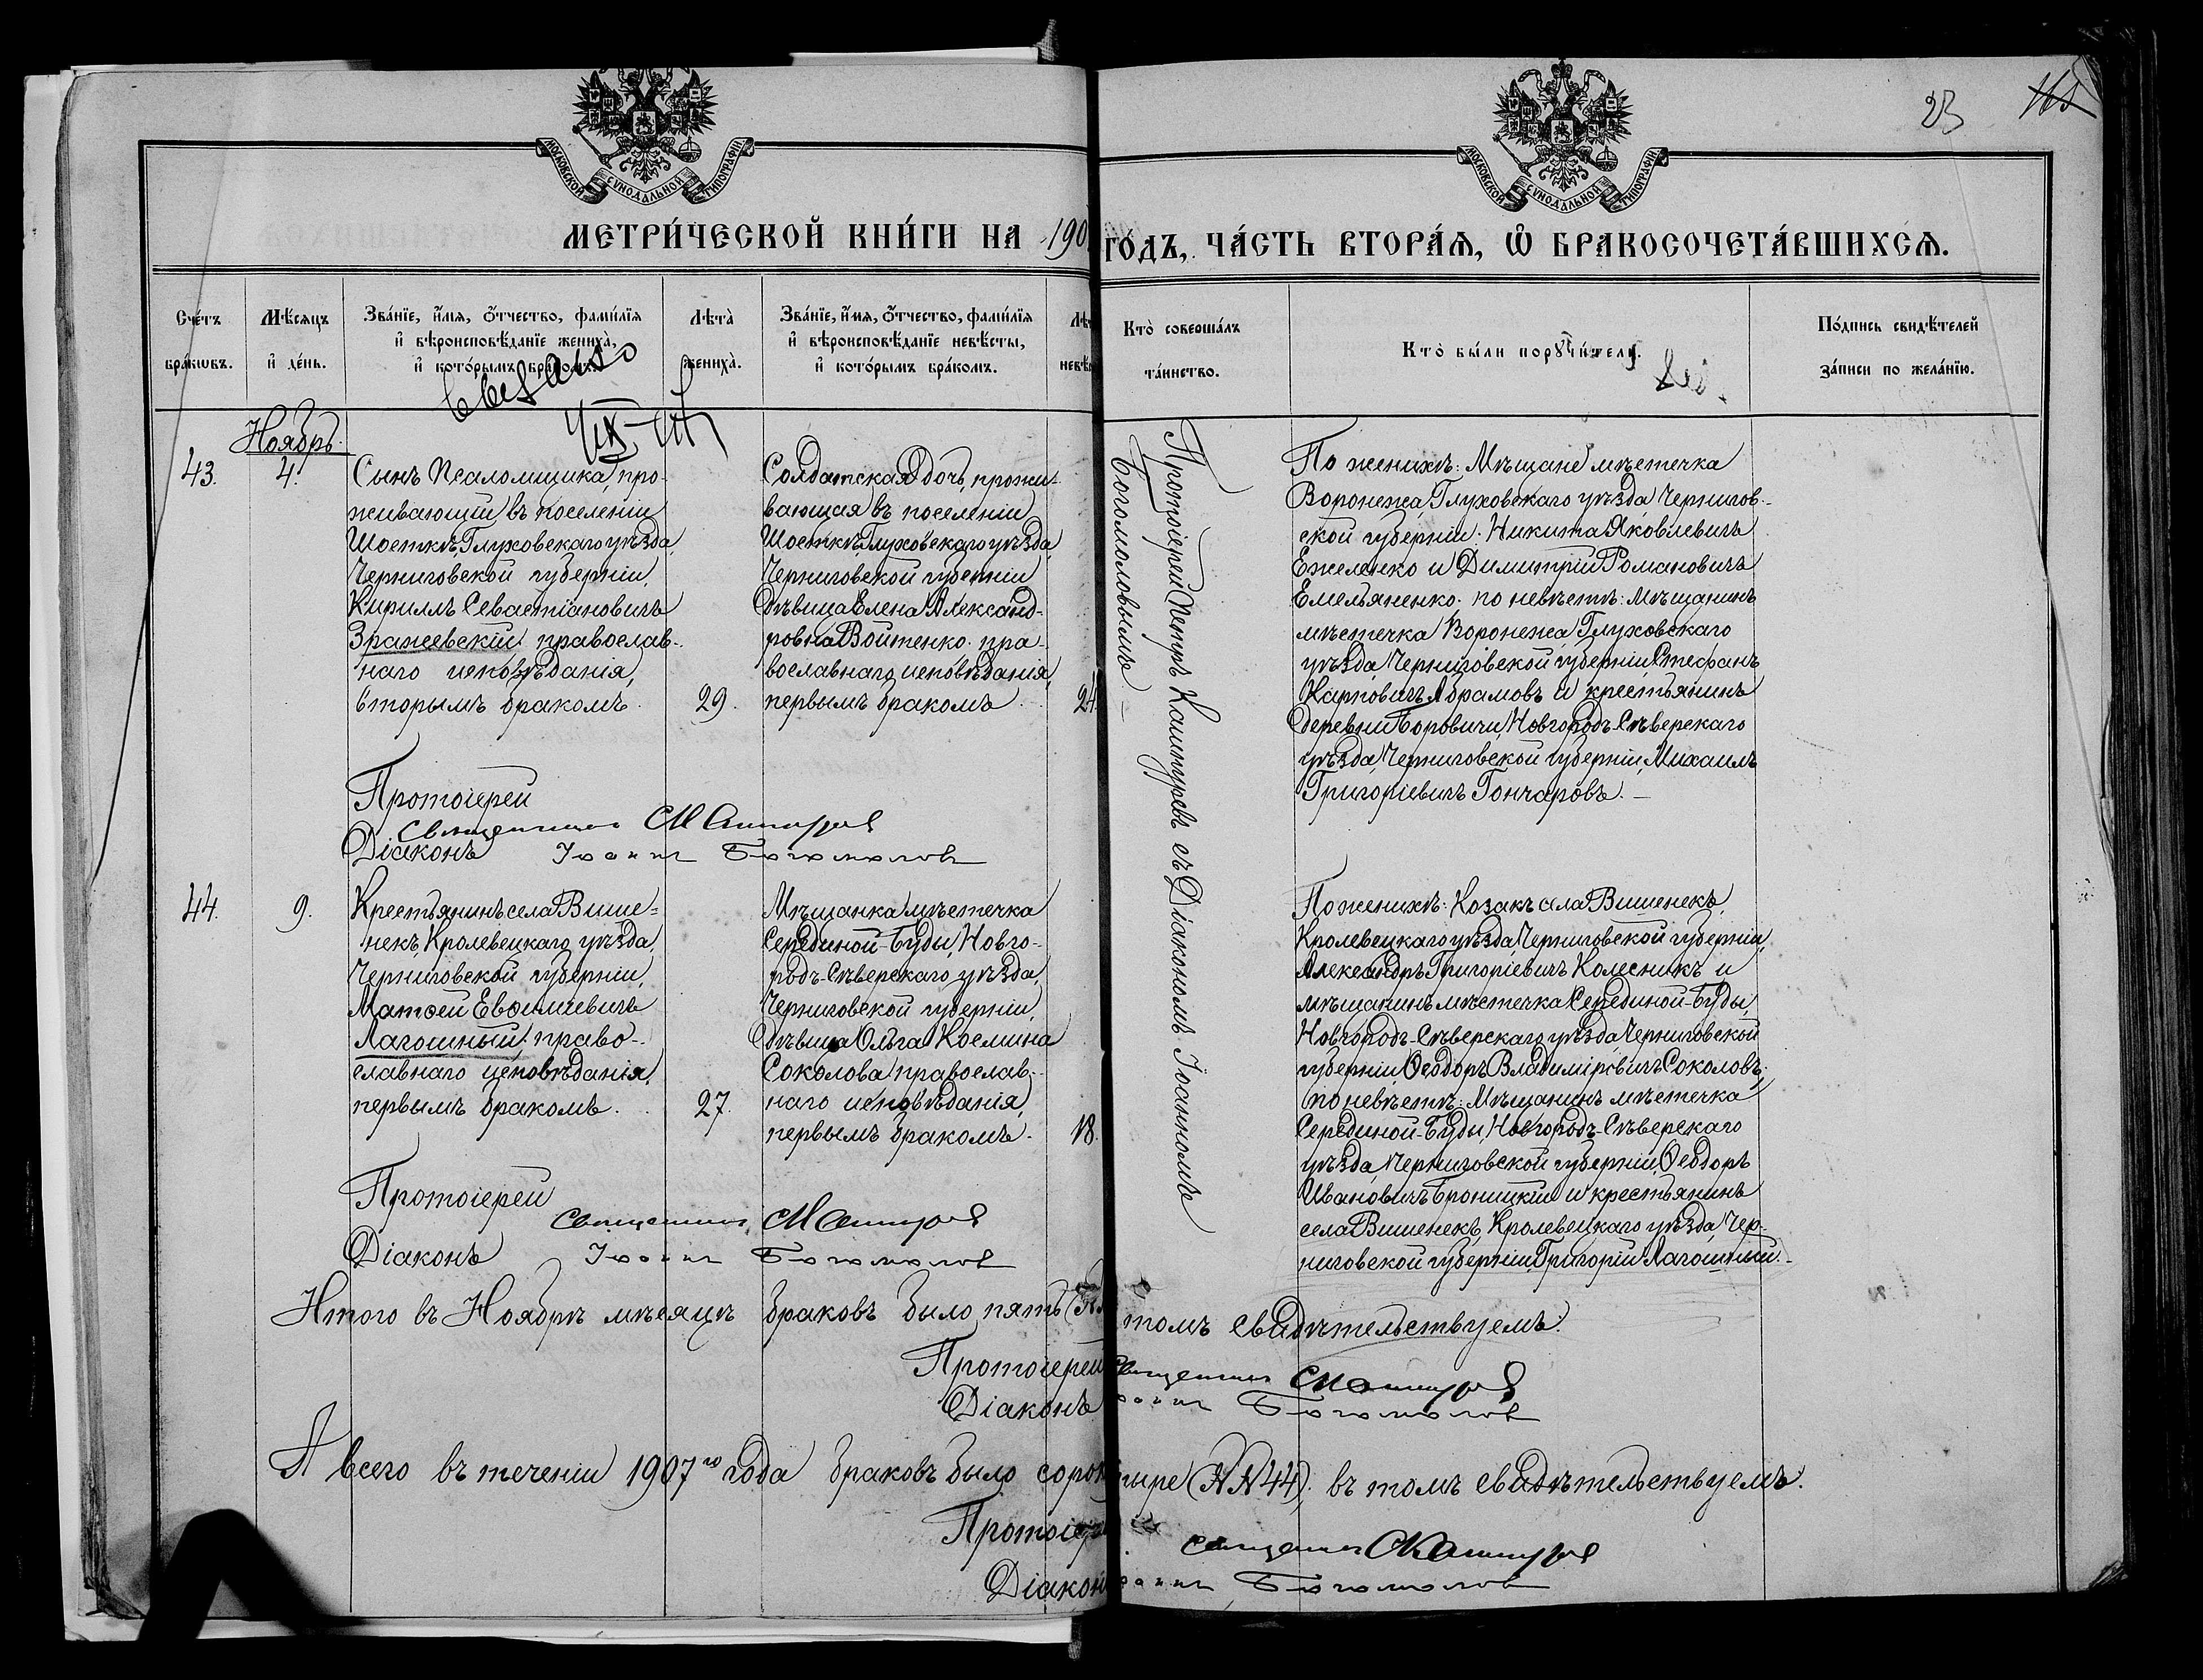 23 165
МОСКОВСКОЙ СѴНОДАЛЬНОЙ ТИПОГРАФІИ
МОСКОВСКОЙ СѴНОДАЛЬНОЙ ТИПОГРАФІИ
МЕТРИ́ЧЕСКОЙ КНИ́ГИ НА 190
ГО́ДЪ, ЧА́СТЬ ВТОРА́Я, Ѡ҆ БРАКОСОЧЕТА́ВШИХСЯ.
Сче́тъ
бра́кѡвъ.
Мѣ́сяцъ
и҆ де́нь.
Зва́нїе, и҆́мя, ѻ҆́тчество, фами́лїя
и҆ вѣроисповѣ́данїе жениха̀,
и҆ кото́рымъ бра́комъ.
Лѣта̀
жениха̀.
Зва́нїе, и҆́мя, ѻ҆́тчество, фами́лїя
и҆ вѣроисповѣ́данїе невѣ́сты,
и҆ кото́рымъ бра́комъ.
Кто̀ соверша́лъ
та́инство.
Кто̀ бы́ли порꙋчи́тели.
По́дпись свидѣ́телей
за́писи по жела́нїю.
Ноябрь.
43.
4.
Сынъ псаломщика, про-
живающій въ поселеніи
Шосткѣ, Глуховскаго уѣзда,
Черниговской губерніи,
Кириллъ Севастіановичъ
Зражевскій православ-
наго исповѣданія,
вторымъ бракомъ.
29.
Солдатская дочь, прожи-
вающая въ поселеніи
Шосткѣ Глуховскаго уѣзда,
Черниговской губерніи,
дѣвица Елена Александ-
ровна Войтенко. пра-
вославнаго исповѣданія,
первымъ бракомъ.
24.
Протоіерей Петръ Кашпуревъ съ Діакономъ Іоанномъ
Богомоловымъ. —
По женихѣ: Мѣщане мѣстечка
Воронежа, Глуховскаго уѣзда Чернигов-
ской губерніи: Никита Яковлевичъ
Ежеленко и Димитрій Романовичъ
Емельяненко. по невѣстѣ: Мѣщанинъ
мѣстечка Воронежа, Глуховскаго
уѣзда, Черниговской губерніи Стефанъ
Карповичъ Абрамовъ и крестьянинъ
деревни Боровичи, Новгородъ-Сѣверскаго
уѣзда, Черниговской губерніи, Михаилъ
Григоріевичъ Гончаровъ. —
Протоіерей
Священникъ
Діаконъ Іоаннъ Богомоловъ
44.
9.
Крестьянинъ села Више=
некъ, Кролевецкаго уѣзда,
Черниговской губерніи,
Матѳей Евѳиміевичъ
Лагошный, право-
славнаго исповѣданія,
первымъ бракомъ.
27.
Мѣщанка мѣстечка
Серединой-Буды, Новго-
родъ-Сѣверскаго уѣзда,
Черниговской губерніи,
дѣвица Ольга Космина
Соколова, православ-
наго исповѣданія,
первымъ бракомъ.
18.
По женихѣ: Козакъ села Вишенекъ,
Кролевецкаго уѣзда, Черниговской губерніи,
Александръ Григоріевичъ Колесникъ и
мѣщанинъ мѣстечка Серединой-Буды,
Новгородъ-Сѣверскаго уѣзда Черниговской
губерніи, Ѳеодоръ Владиміровичъ Соколовъ;
по невѣстѣ: Мѣщанинъ мѣстечка
Серединой-Буды, Новгородъ-Сѣверскаго
уѣзда, Черниговской губерніи, Ѳеодоръ
Ивановичъ Броницкій и крестьянинъ
села Вишенекъ, Кролевецкаго уѣзда, Чер-
ниговской губерніи, Григорій Лагошный. —
Протоіерей
Священникъ
Діаконъ Іоаннъ Богомоловъ
Итого въ Ноябрѣ мѣсяцѣ браковъ было пять
томъ свидѣтельствуемъ.
Протоіерей
Діаконъ Богомоловъ
А всего въ теченіи 1907го года браковъ было сорок
тыре (№№ 44). въ томъ свидѣтельствуемъ.
Протоіер
Діакон Богомоловъ